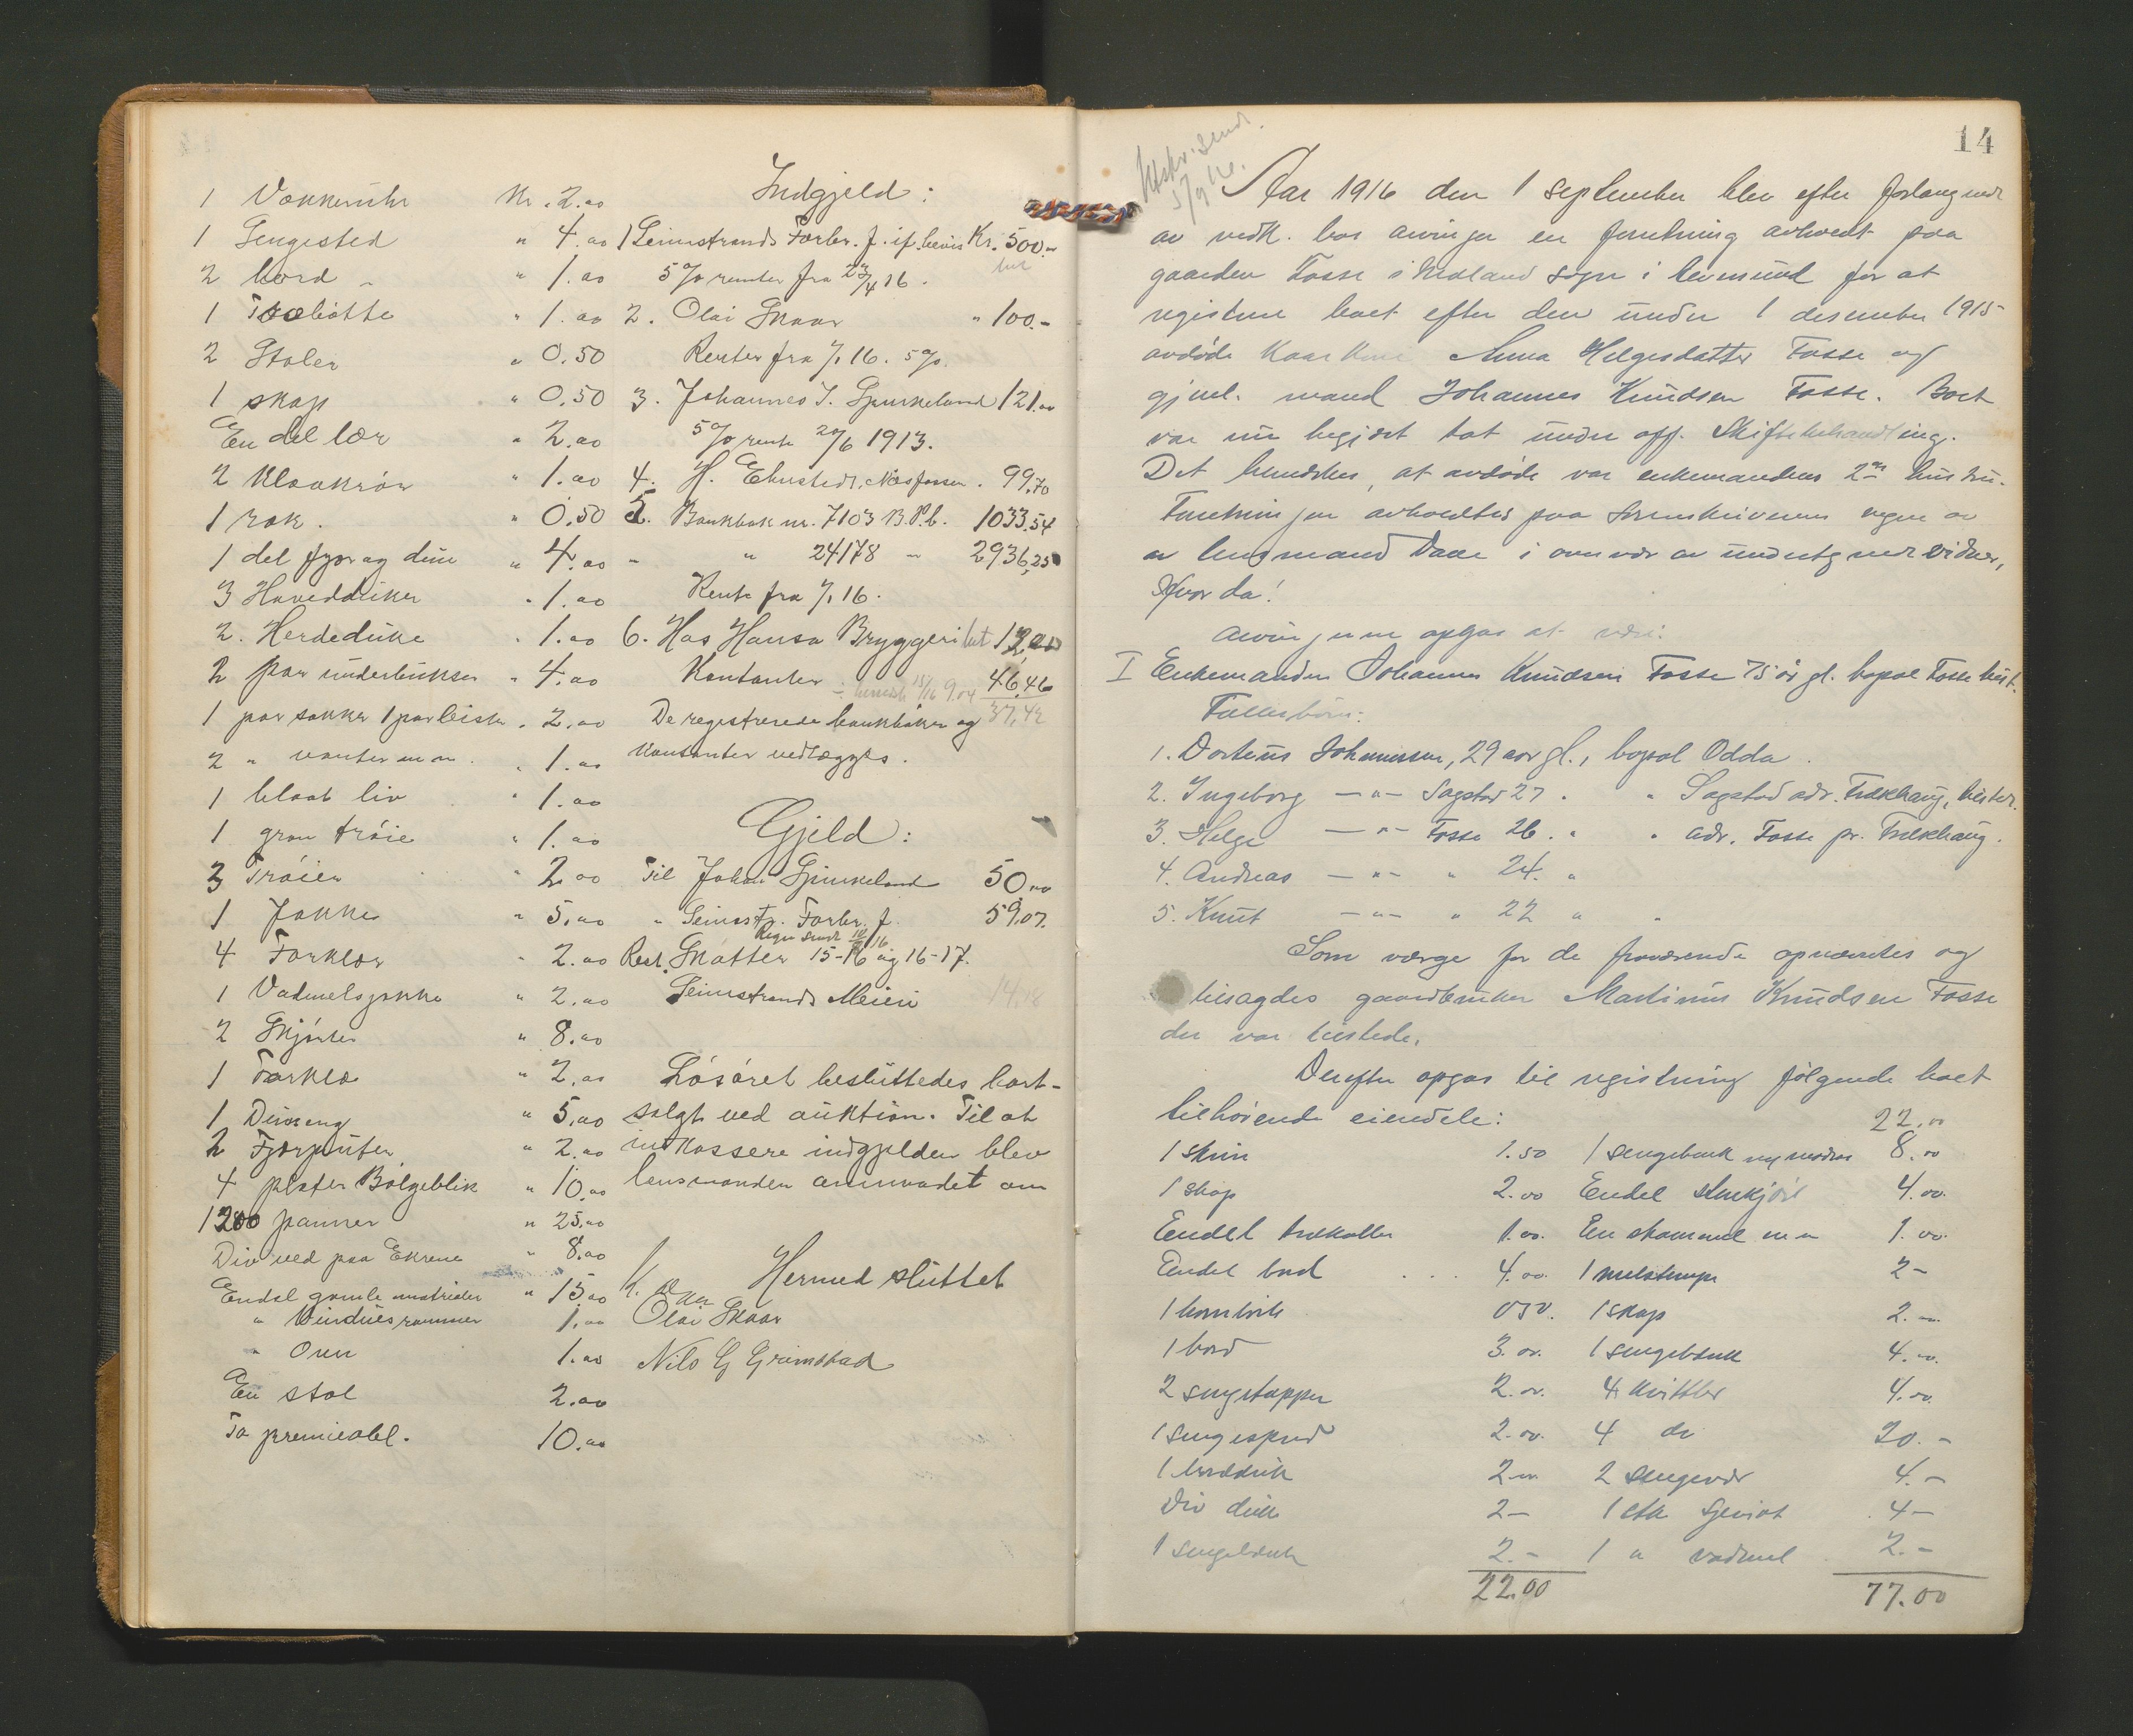 1 Vækkeruhr Kr. 2.00
1 Sengested " 4.00
2 bord " 1.00
1 Træbøtte " 1.00
2 Stoler " 0.50
1 skap " 0.50
En del lær " 2.00
2 Klovkrør " 1.00
1 rok. " 0.50
1 del fjær og dun " 4.00
3 Hoveddúker " 1.00
2. Herdedúke " 1.00
2 par únderbúkser " 4.00
1 par sokker 1 par leister " 2.00
2 " vanter m m. " 1.00
1 blaat liv " 1.00
1 graa trøie " 1.00
3 Trøier " 2.00
1 Jakke " 5.00
4 Forklær " 2.00
1 Vadmelsjakke " 2.00
2 Skjørter " 8.00
1 Forklæ " 2.00
1 Duneng " 5.00
2 Fjærpúter " 2.00
4 plater Bølgeblik " 10.00
1200 panner " 25.00
Div ved paa Ekrene " 8.00
Endel gamle materialer " 15.00
" Vindúesrammer 1.00
" Ovn 1.00
En stol 2.00
To premieobl. 10.00
Indgjeld:
1 Seimstrands Forbr. f. if. bevis Kr. 500.-
5 % renter fra 23/4 16.
2. Olai Skaar " 100.-
Renter fra 1/1 16. 5%.
3. Johannes J. Spurkeland 121.00
5% rente 20/6 1913.
4. H. Ehnstedt, Næsfossen. 99,70
5. Bankbok nr. 7103 B.P.b. 1033.54
- " 24178 - 2936,25
Rente fra 1/1 16.
6. Hos Hansa Bryggeri 12,00
Kontanter 46,46
37,42
De registrerede bankbøker og
kontanter vedlægges.
Gjeld:
Til Johan Spurkeland 50.00
" Seimstr. Forbr. f. 59,07.
Rest. Skatter 15-16 og 16-17.
Seimstrands Meieri 14,18
Løsøret beslúttedes bort-
solgt ved aúktion. Til at
indkassere indgjelden blev
lensmanden anmodet om
Hermed slúttet
Olai Skaar
Nils G Grimstad
14
Utskr. sendt
5/9 16.
Aar 1916 den 1 september blev efter forlangende
av vedk. hos arvinger en forretning avholdt paa
gaarden Fosse i Meland sogn i Alversund for at
registrere boet efter den únder 1 desember 1915
avdøde Kaarkone Anna Helgesdatter Fosse og
gjenl. mand Johannes Knúdsen Fosse. Boet
var nú begjært tat únder off. Skiftebehandling.
Det bemerkes, at avdøde var enkemandens 2den hústrú.
Forretningen avholdtes paa sorenskriverens vegne av
av lensmand Daae i overvær av úndertegnede vidner,
Hvorda!
Arvingerne opgas at være:
I Enkemanden Johannes Knúdsen Fosse 75 år gl. bopæl Fosse
Fællesbørn:
1. Dorteús Johannessen, 29 aar gl., bopæl Odda.
2. Ingeborg —"— Sagstad 27 " " Sagstad adr. Frekhaug,
3. Helge —"— Fosse 26 " " adr. Fosse pr. Frekhaug.
4. Andreas —"— " 24. "
5. Knút —"— " 22 " "
Som værge for de fraværende opnævntes og
tilsagdes gaardbrúker Martinús Knúdsen Fosse
der var tilstede.
Derefter opgas til registrering følgende boet
tilhørende eiendele:
22.00
1 skrin 1.50 1 sengebenk 8.00
1 skap 2.00 Endel stenkjøl 4.00.
Endel trekoller 1.00. En skammel m m 1.00.
Endel bord 4.00. 1 melstamp 2-
1 050. 1 skap 2.-
1 bord 3.00. 1 sengebenk 4.00.
2 sengetepper 2.00. 4 kvittler 4.00.
1 sengespred 2.00. 4 do 20.-
1 borddúk 2.00 2 sengevær 4.-
Div dúke 2- 1 stk sjeviot 4-
1 sengebenk 2.- 1 " vadmel 2.-
22.00 77.00